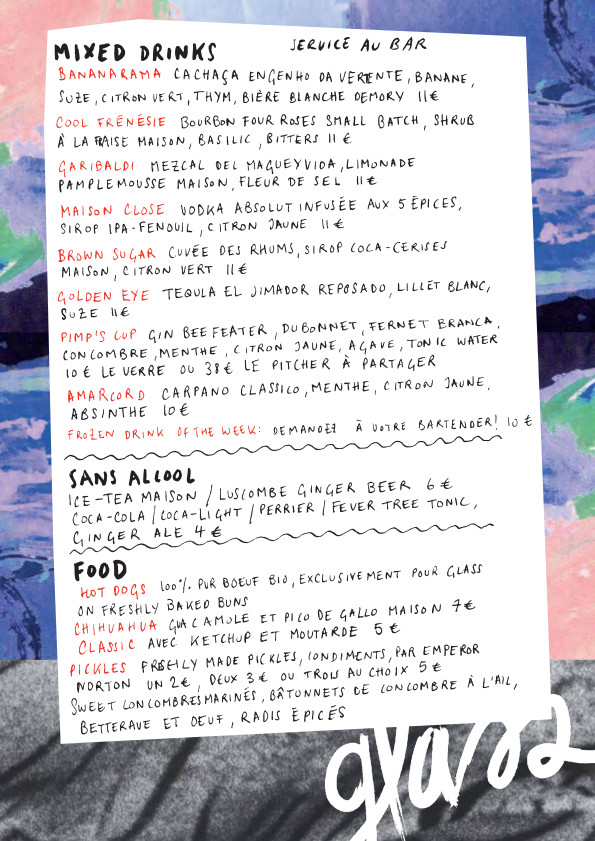 MIXED DRINKS SERVICE AU BAR
BANANARAMA CACHAÇA ENGENHO DA VERTENTE, BANANE,
SUZE, CITRON VERT, THYM, BIÈRE BLANCHE DEMORY 11€
COOL FRÉNÉSIE BOURBON FOUR ROSES SMALL BATCH, SHRUB
À LA FRAISE MAISON, BASILIC, BITTERS 11€
GARIBALDI MEZCAL DEL MAGUEY VIDA, LIMONADE
PAMPLEMOUSSE MAISON, FLEUR DE SEL 11€
MAISON CLOSE VODKA ABSOLUT INFUSÉE AUX 5 ÉPICES,
SIROP IPA-FENOUIL, CITRON JAUNE 11€
BROWN SUGAR CUVÉE DES RHUMS, SIROP COCA-CERISES
MAISON, CITRON VERT 11€
GOLDEN EYE TEQULA EL JIMADOR REPOSADO, LILLET BLANC,
SUZE 11€
PIMP'S CUP GIN BEEFEATER, DUBONNET, FERNET BRANCA,
CONCOMBRE, MENTHE, CITRON JAUNE, AGAVE, TONIC WATER
10€ LE VERRE OU 38€ LE PITCHER À PARTAGER
AMARCORD CARPANO CLASSICO, MENTHE, CITRON JAUNE,
ABSINTHE 10€
FROZEN DRINK OF THE WEEK: DEMANDEZ À VOTRE BARTENDER! 10€
SANS ALCOOL
ICE-TEA MAISON / LUSCOMBE GINGER BEER 6€
COCA-COLA / COCA-LIGHT / PERRIER / FEVER TREE TONIC,
GINGER ALE 4€
FOOD
HOT DOGS 100% PUR BOEUF BIO, EXCLUSIVEMENT POUR GLASS
ON FRESHLY BAKED BUNS
CHIHUAHUA GUACAMOLE ET PICO DE GALLO MAISON 7€
CLASSIC AVEC KETCHUP ET MOUTARDE 5€
PICKLES FRESHLY MADE PICKLES, CONDIMENTS, PAR EMPEROR
NORTON UN 2€, DEUX 3€ OU TROIS AU CHOIX 5€
SWEET CONCOMBRES MARINÉS, BÂTONNETS DE CONCOMBRE À L'AIL,
BETTERAVE ET OEUF, RADIS ÉPICÉS
glass